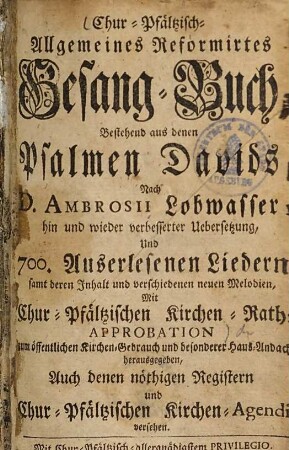 Chur-Pfältzisch-
Allgemeines Reformirtes
Gesang-Buch,
Bestehend aus denen
Psalmen Davids,
Nach
D. AMBROSII Lobwasser
hin und wieder verbesserter Uebersetzung,
Und
700. Auserlesenen Liedern
samt deren Inhalt und verschiedenen neuen Melodien,
Mit
Chur-Pfältzischen Kirchen-Rath-
APPROBATION
zum öffentlichen Kirchen-Gebrauch und besonderer Haus-Andach
herausgegeben,
Auch denen nöthigen Registern
und
Chur-Pfältzischen Kirchen-Agendi
versehen.
Mit Chur-Pfältzisch-allergnädigstem PRIVILEGIO.